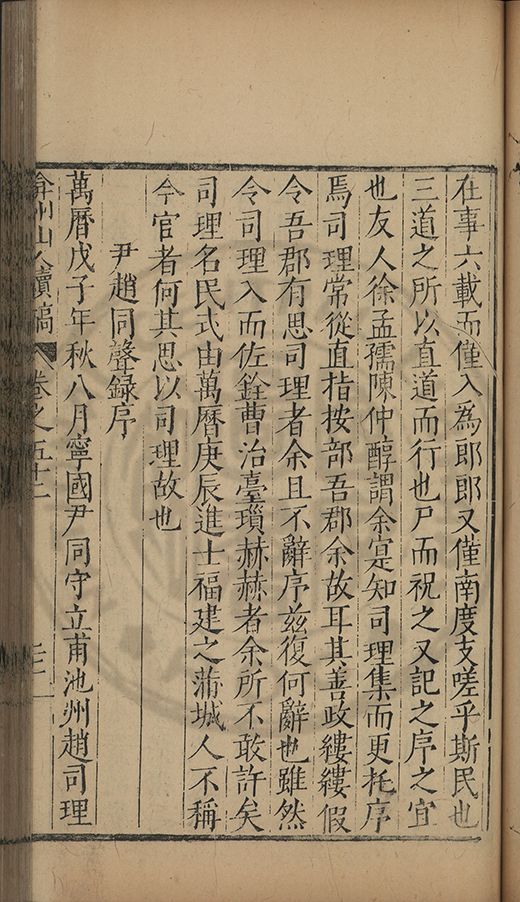 在事六載而僅入為郎郎又僅南度支嗟乎斯民也
三道之所以直道而行也尸而祝之又記之序之宜
也友人徐孟孺陳仲醇謂余寔知司理集而更托序
焉司理常從直指按部吾郡余故耳其善政縷縷假
令吾郡有思司理者余且不辭序兹復何辭也雖然
令司理入而佐銓曹治臺瑣赫赫者余所不敢許矣
司理名民式由萬曆庚辰進士福建之蒲城人不稱
今官者何其思以司理故也
尹趙同聲録序
萬曆戊子年秋八月寧國尹同守立甫池州趙司理
弇州山人續稿 卷之五十二